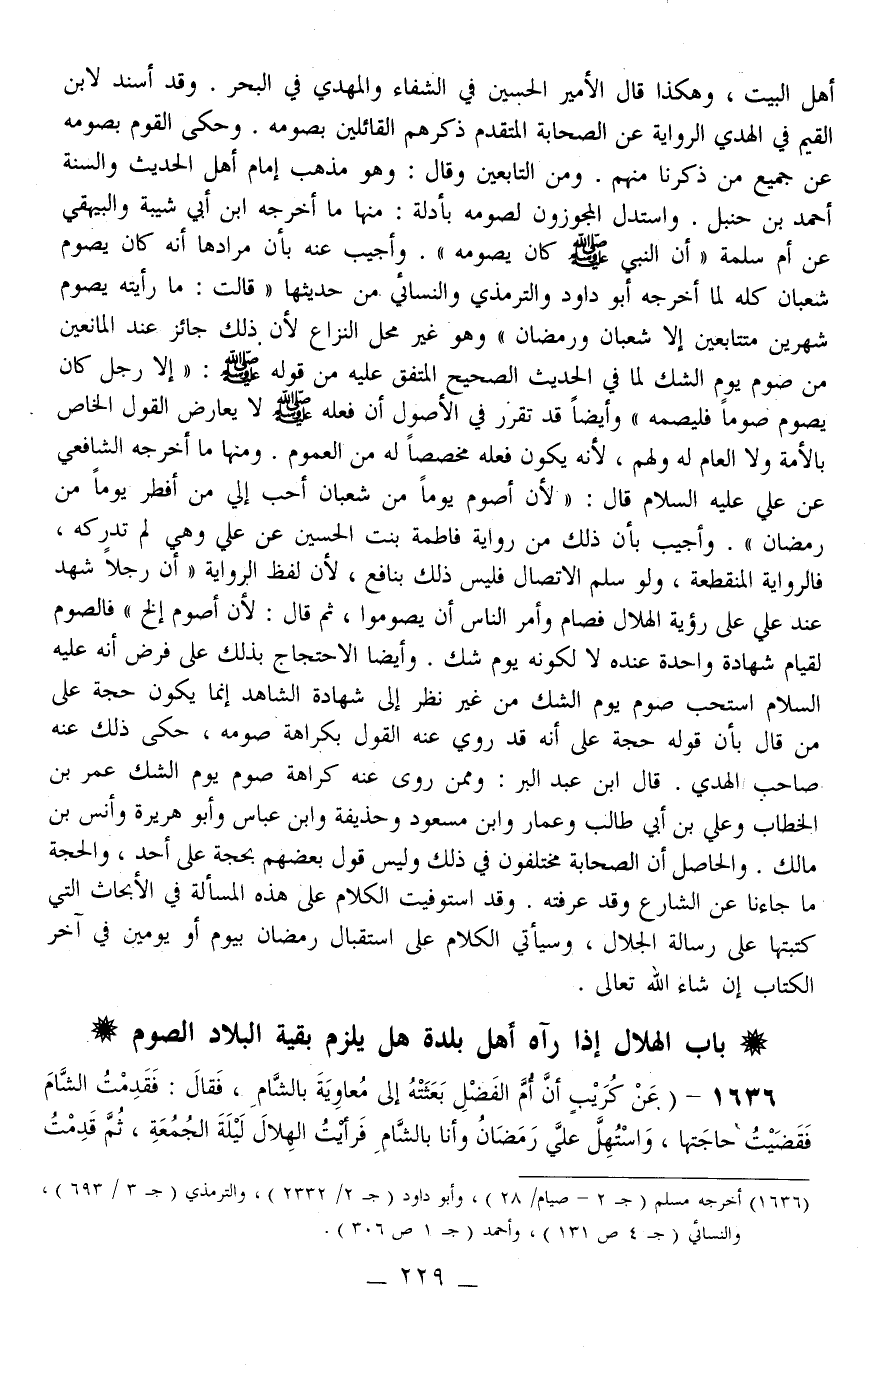 أهل البيت ، وهكذا قال الأمير الحسين في الشفاء والمهدي في البحر . وقد أسند لابن
القيم في الهدي الرواية عن الصحابة المتقدم ذكرهم القائلين بصومه . وحكى القوم بصومه
عن جميع من ذكرنا منهم . ومن التابعين وقال : وهو مذهب إمام أهل الحديث والسنة
أحمد بن حنبل . واستدل المجوزون لصومه بأدلة : منها ما أخرجه ابن أبي شيبة والبيهقي
عن أم سلمة « أن النبي ﷺ كان يصومه » . وأجيب عنه بأن مرادها أنه كان يصوم
شعبان كله لما أخرجه أبو داود والترمذي والنسائي من حديثها « قالت : ما رأيته يصوم
شهرين متتابعين إلا شعبان ورمضان » وهو غير محل النزاع لأن ذلك جائز عند المانعين
من صوم يوم الشك لما في الحديث الصحيح المتفق عليه من قوله ﷺ : « إلا رجل كان
يصوم صوماً فليصمه » وأيضاً قد تقرر في الأصول أن فعله ﷺ لا يعارض القول الخاص
بالأمة ولا العام له ولهم ، لأنه يكون فعله مخصصاً له من العموم . ومنها ما أخرجه الشافعي
عن علي عليه السلام قال : « لأن أصوم يوماً من شعبان أحب إلي من أفطر يوماً من
رمضان » . وأجيب بأن ذلك من رواية فاطمة بنت الحسين عن علي وهي لم تدركه ،
فالرواية المنقطعة ، ولو سلم الاتصال فليس ذلك بنافع ، لأن لفظ الرواية « أن رجلاً شهد
عند علي على رؤية الهلال فصام وأمر الناس أن يصوموا ، ثم قال : لأن أصوم إلخ » فالصوم
لقيام شهادة واحدة عنده لا لكونه يوم شك . وأيضا الاحتجاج بذلك على فرض أنه عليه
السلام استحب صوم يوم الشك من غير نظر إلى شهادة الشاهد إنما يكون حجة على
من قال بأن قوله حجة على أنه قد روي عنه القول بكراهة صومه ، حكى ذلك عنه
صاحب الهدي . قال ابن عبد البر : وممن روى عنه كراهة صوم يوم الشك عمر بن
الخطاب وعلي بن أبي طالب وعمار وابن مسعود وحذيفة وابن عباس وأبو هريرة وأنس بن
مالك . والحاصل أن الصحابة مختلفون في ذلك وليس قول بعضهم بحجة على أحد ، والحجة
ما جاءنا عن الشارع وقد عرفته . وقد استوفيت الكلام على هذه المسألة في الأبحاث التي
كتبتها على رسالة الجلال ، وسيأتي الكلام على استقبال رمضان بيوم أو يومين في آخر
الكتاب إن شاء الله تعالى .
باب الهلال إذا رآه أهل بلدة هل يلزم بقية البلاد الصوم
١٦٣٦ – ( عَنْ كُرَيْبٍ أَنَّ أُمَّ الفَضْلِ بَعَثَتْهُ إلى مُعاوِيَةَ بالشَّامِ ، فَقالَ : فَقَدِمْتُ الشَّامَ
فَقَضَيْتُ حاجَتها ، وَاسْتُهِلَّ عليَّ رَمَضَانُ وأنا بالشَّامِ فَرأيْتُ الهِلالَ لَيْلَةَ الجُمُعَةِ ، ثُمَّ قَدِمْتُ
(١٦٣٦) أخرجه مسلم ( جـ ٢ – صيام/ ٢٨ ) ، وأبو داود ( جـ ٢/ ٢٣٣٢ ) ، والترمذي ( جـ ٣ / ٦٩٣ ) ،
والنسائي ( جـ ٤ ص ١٣١ ) ، وأحمد ( جـ ١ ص ٣٠٦ ) .
_ ٢٢٩ _